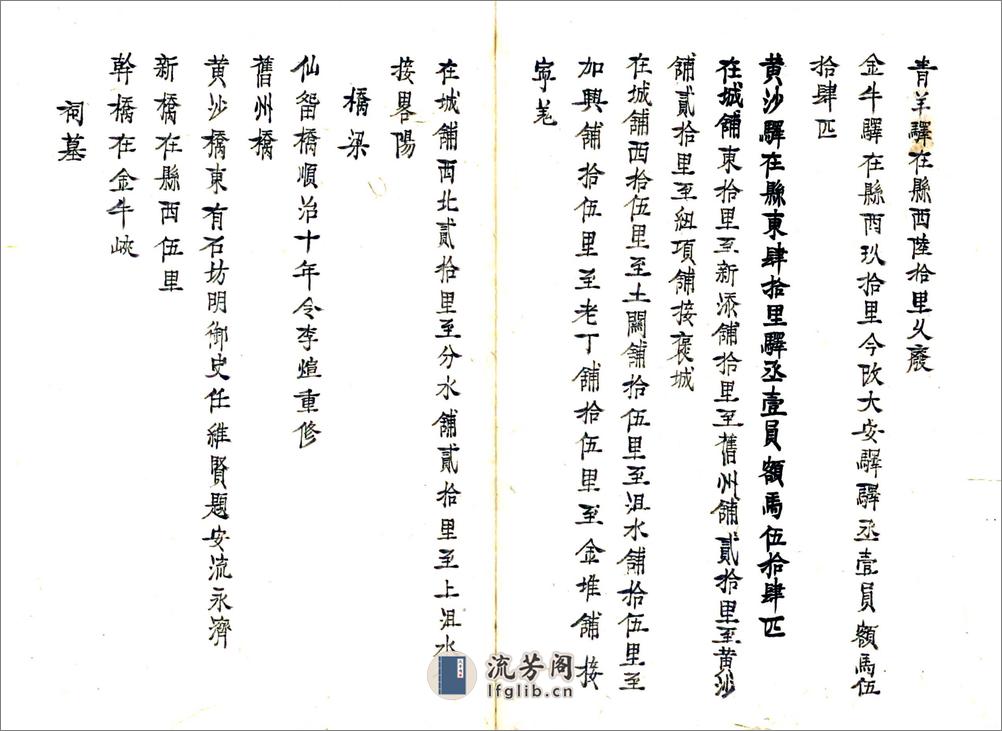 青羊驛在縣西陸拾里乆廢
金牛驛在縣西玖拾里今改大安驛驛丞壹員額馬伍
拾肆匹
黄沙驛在縣東肆拾里驛丞壹員額馬伍拾肆匹
在城舖東拾里至新添舖拾里至舊州舖貳拾里至黄沙
舖貳拾里至紐項舖接褒城
在城舖西拾伍里至土關舖拾伍里至沮水舖拾伍里至
加興舖拾伍里至老丁舖拾伍里至金堆舖接
寧羌
在城舖西北貳拾里至分水舖貳拾里至上沮水
接畧陽
橋梁
仙留橋順治十年令李煊重修
舊州橋
黄沙橋東有石坊明御史任維賢題安流永濟
新橋在縣西伍里
幹橋在金牛峽
祠墓
流芳阁
lfglib.cn